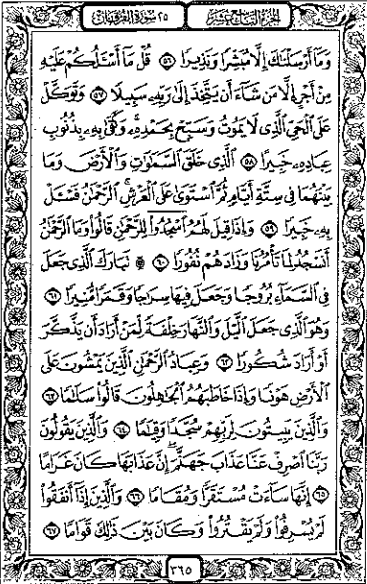 الجزء التاسع عشر ٢٥ سورة الفرقان
وَمَآ أَرْسَلْنَٰكَ إِلَّا مُبَشِّرًا وَنَذِيرًا ٥٦ قُلْ مَآ أَسْـَٔلُكُمْ عَلَيْهِ
مِنْ أَجْرٍ إِلَّا مَن شَآءَ أَن يَتَّخِذَ إِلَىٰ رَبِّهِۦ سَبِيلًا ٥٧ وَتَوَكَّلْ
عَلَى ٱلْحَىِّ ٱلَّذِى لَا يَمُوتُ وَسَبِّحْ بِحَمْدِهِۦ ۚ وَكَفَىٰ بِهِۦ بِذُنُوبِ
عِبَادِهِۦ خَبِيرًا ٥٨ ٱلَّذِى خَلَقَ ٱلسَّمَٰوَٰتِ وَٱلْأَرْضَ وَمَا
بَيْنَهُمَا فِى سِتَّةِ أَيَّامٍ ثُمَّ ٱسْتَوَىٰ عَلَى ٱلْعَرْشِ ۚ ٱلرَّحْمَٰنُ فَسْـَٔلْ
بِهِۦ خَبِيرًا ٥٩ وَإِذَا قِيلَ لَهُمُ ٱسْجُدُوا۟ لِلرَّحْمَٰنِ قَالُوا۟ وَمَا ٱلرَّحْمَٰنُ
أَنَسْجُدُ لِمَا تَأْمُرُنَا وَزَادَهُمْ نُفُورًا ۩ ٦٠ تَبَارَكَ ٱلَّذِى جَعَلَ
فِى ٱلسَّمَآءِ بُرُوجًا وَجَعَلَ فِيهَا سِرَٰجًا وَقَمَرًا مُّنِيرًا ٦١
وَهُوَ ٱلَّذِى جَعَلَ ٱلَّيْلَ وَٱلنَّهَارَ خِلْفَةً لِّمَنْ أَرَادَ أَن يَذَّكَّرَ
أَوْ أَرَادَ شُكُورًا ٦٢ وَعِبَادُ ٱلرَّحْمَٰنِ ٱلَّذِينَ يَمْشُونَ عَلَى
ٱلْأَرْضِ هَوْنًا وَإِذَا خَاطَبَهُمُ ٱلْجَٰهِلُونَ قَالُوا۟ سَلَٰمًا ٦٣
وَٱلَّذِينَ يَبِيتُونَ لِرَبِّهِمْ سُجَّدًا وَقِيَٰمًا ٦٤ وَٱلَّذِينَ يَقُولُونَ
رَبَّنَا ٱصْرِفْ عَنَّا عَذَابَ جَهَنَّمَ ۖ إِنَّ عَذَابَهَا كَانَ غَرَامًا
٦٥ إِنَّهَا سَآءَتْ مُسْتَقَرًّا وَمُقَامًا ٦٦ وَٱلَّذِينَ إِذَآ أَنفَقُوا۟
لَمْ يُسْرِفُوا۟ وَلَمْ يَقْتُرُوا۟ وَكَانَ بَيْنَ ذَٰلِكَ قَوَامًا ٦٧
٣٦٥